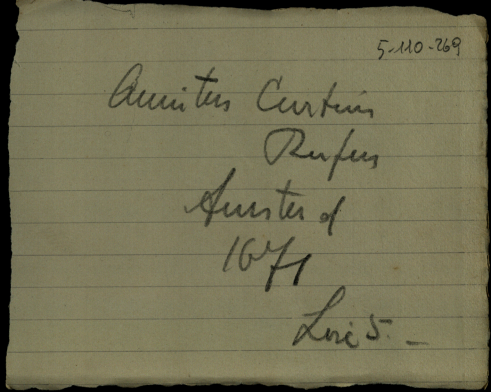 5-110-269
Quintus Curtius
Rufus
Amsterd
1671
Lire 5.-